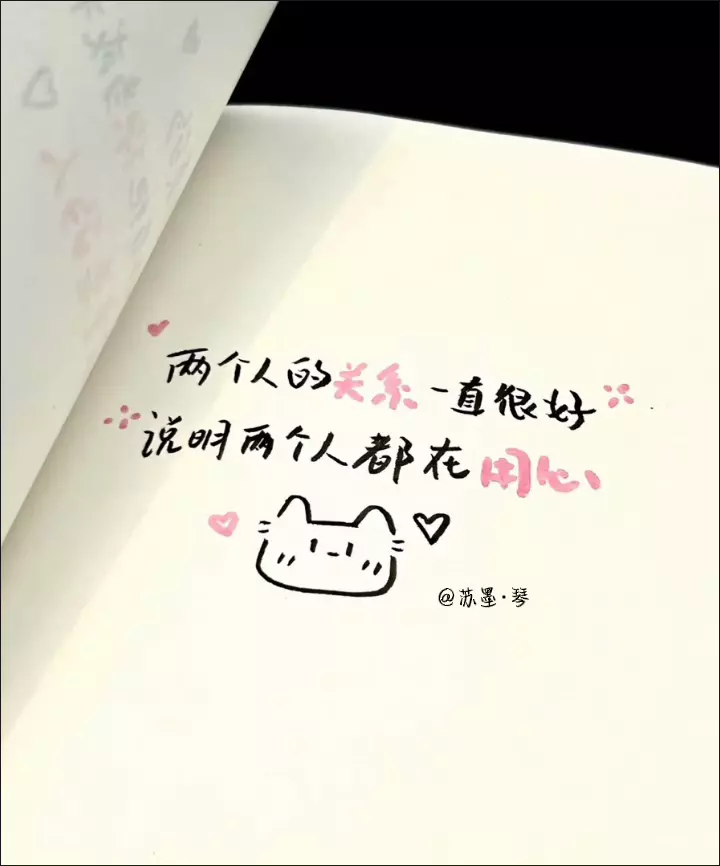 两个人的关系一直很好
说明两个人都在用心
@苏墨·琴